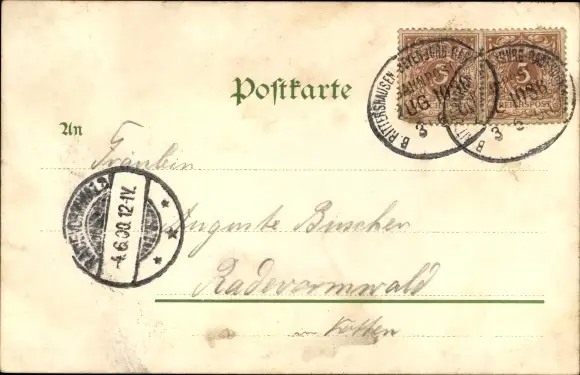 Postkarte
An
Fräulein
Auguste Buscher
Radevormwald
Kotten
3
REICHSPOST
5
REICHSPOST
B. RITTERSHAUSEN
3 6
3 6
RADEVORMWALD
4.6.00.12-1V.